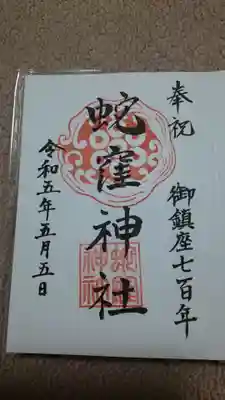 奉祝
御鎮座七百年
蛇窪神社
令和五年五月五日
蛇窪
神社